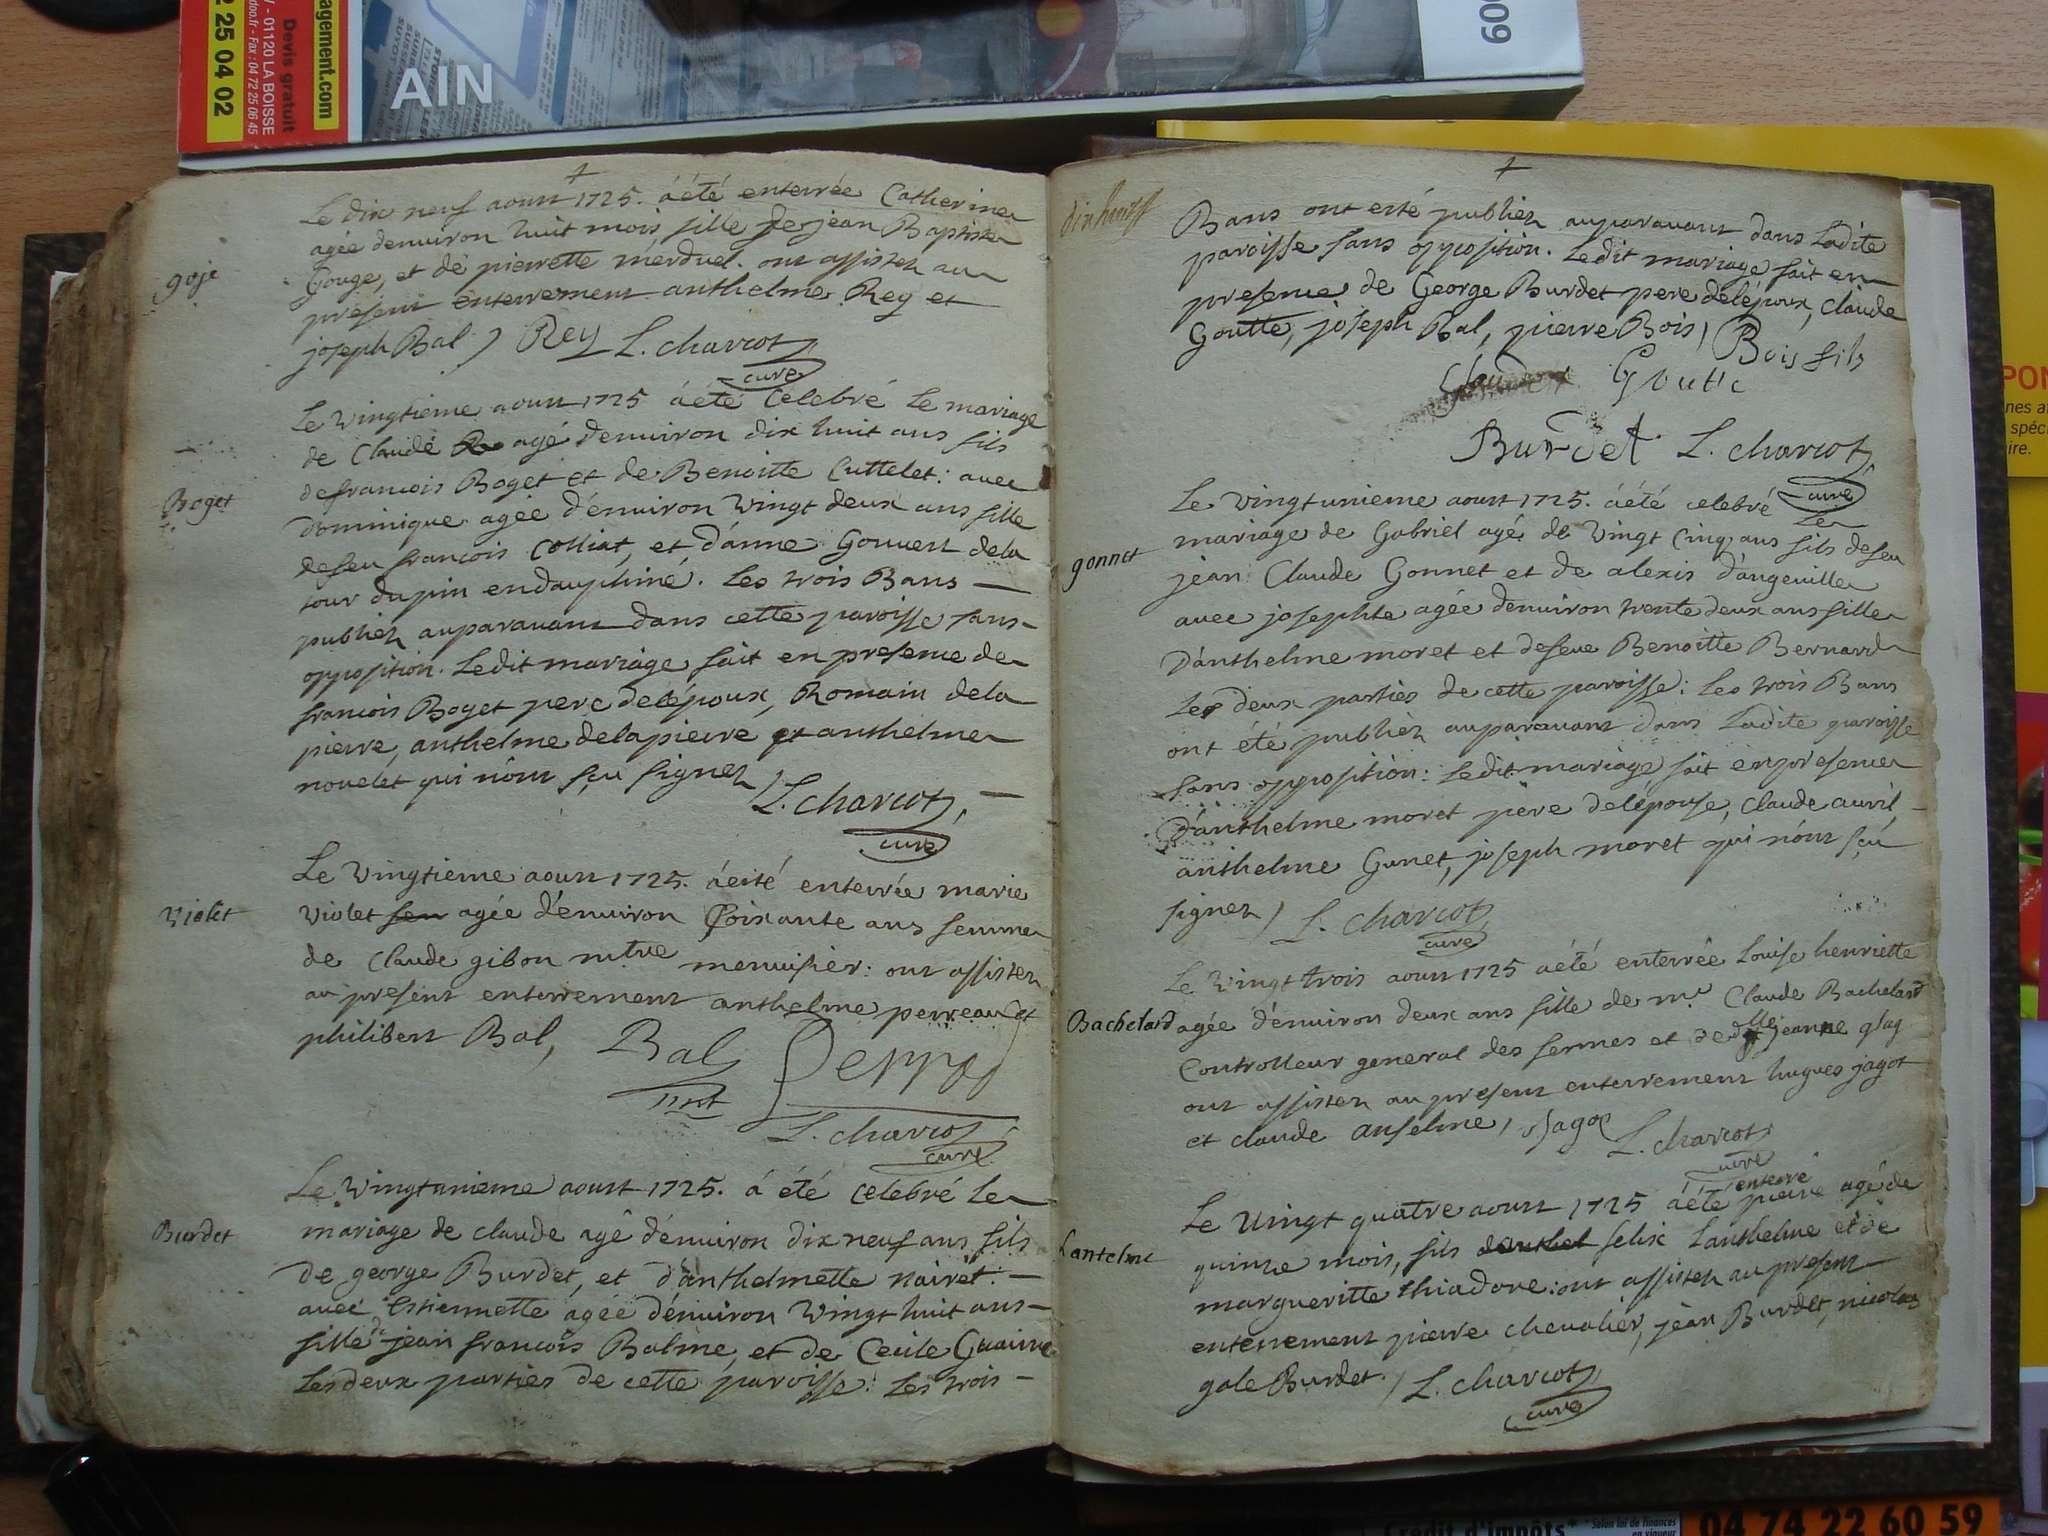 agement.com
Devis gratuit
V - 01120 LA BOISSE
doo.fr - Fax : 04 72 25 06 45
2 25 04 02
AIN
009
PON
nes a
spéc
ire.
Le dix neuf aoust 1725. áété enterrée Catherine
agée denuiron huit mois fille de jean Baptiste
goje
Gouge, et de pierrette merduel. ont assistez au
present enterrement anthelme Rey et
joseph Bal / Rey L. charcot
curé
Le Vingtième aoust 1725 áété Célébré Le mariage
de Claude agé d'enuiron dix huit ans fils
de francois Boget et de Benoitte Cuttelet : auec
Boget
Dominique agée d'énuiron Vingt deux ans fille
de feu francois Colliat, et d'anne Gouuert de la
tour dupin en dauphiné. Les trois Bans —
publiez auparauant dans cette paroisse sans -
opposition. Ledit mariage fait en presence de
francois Boget pere de lépoux, Romain de la
pierre, anthelme de la pierre et anthelme
nouelet qui n'ont sçu signer / L. charcot, —
curé
Le Vingtième aoust 1725. áesté enterrée marie
Violet
Violet fem agée d'énuiron soixante ans femme
de Claude gibon mtre menuisier : ont assistez
au present enterrement anthelme perreau et
philibert Bal, Bal
L. charcot
curé
Le Vingtunieme aoust 1725. á été Celebré Le
Burdet
mariage de claude agé d'énuiron dix neuf ans fils
de george Burdet, et d'anthelmette nairet : —
auec Estiennette agée d'énuiron Vingt huit ans -
fille de jean francois Balme, et de Cecile Guaine
Les deux parties de cette paroisse : Les trois -
dix huit
Bans ont esté publiez auparauant dans Ladite
paroisse sans opposition. Ledit mariage fait en
presence de George Burdet pere de lépoux, Claude
Goutte, joseph Bal, pierre Bois / Bois fils
Goutte
Burdet L. charcot
curé
Le Vingtunieme aoust 1725. áété celebré Le
mariage de Gabriel agé de Vingt Cinq ans fils de feu
gonnet
jean Claude Gonnet et de alexis d'angeuille
auec josephte agée denuiron trente deux ans fille
D'anthelme moret et defeue Benoitte Bernard
Les deux parties de cette paroisse : Les trois Bans
ont été publiez auparauant dans Ladite paroisse
sans opposition : Ledit mariage fait en présence
d'anthelme moret père de lépouse, Claude auril, -
anthelme Gunet, joseph moret qui n'ont sçu
signer / L. charcot
curé
Le Vingt trois aoust 1725 áété enterrée Louise henriette
Bachelard
agée d'énuiron deux ans fille de mr Claude Bachelard
Controlleur general des fermes et de dlle jeanne
ont assistez au present enterrement hugues jagot
et claude anselme, / jagot L. charcot
curé
Le Vingt quatre aoust 1725 áété enterré pierre agé de
Lantelme
quinze mois, fils danthel felix Lanthelme et de
margueritte thiadore : ont assistez au present
enterrement pierre cheualier, jean Burdet, nicolas
gale Burdet. / L. charcot
curé
Crédit d'impôts*
*Selon loi de finances
en vigueur
04 74 22 60 59